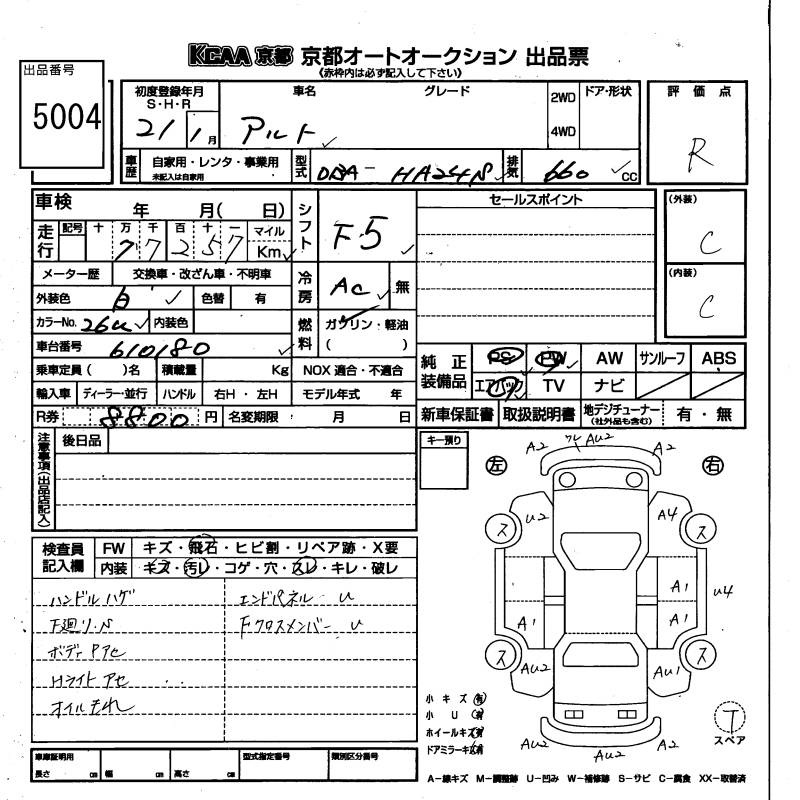 KCAA 京都 京都オートオークション 出品票
《赤枠内は必ず記入して下さい》
出品番号
5004
初度登録年月
S・H・R
21/1月
車名
アルト
グレード
2WD
4WD
ドア・形状
評価点
R
車歴
自家用・レンタ・事業用
未記入は自家用
型式
DBA-HA24N
排気
660 cc
車検 年 月( 日)
シフト
F5
セールスポイント
(外装)
C
走行
記号 十 万 千 百 十 一
77257
マイル
Km
メーター歴 交換車・改ざん車・不明車
冷房
AC
無
(内装)
C
外装色 白 色替 有
カラーNo. 26U 内装色
燃料
ガソリン・軽油
( )
車台番号 610180
純正装備品
PS PW AW サンルーフ ABS
エアバック TV ナビ
乗車定員( )名 積載量 Kg NOX 適合・不適合
輸入車 ディーラー・並行 ハンドル 右H・左H モデル年式 年
新車保証書 取扱説明書 地デジチューナー(社外品も含む) 有・無
R券 8800 円 名変期限 月 日
注意事項(出品店記入)
後日品
キー預り
左
右
A2 ワレ AU2 A2
U2 A4
ス ス
A1
U4
A1 A1
ス ス
AU2 AU1
AU2 AU2 A2
検査員記入欄
FW キズ・飛石・ヒビ割・リペア跡・X要
内装 キズ・汚レ・コゲ・穴・スレ・キレ・破レ
ハンドルハゲ エンドパネル U
下廻り.S Fクロスメンバー U
ボディーPアセ
Hライトアセ
オイルもれ
小キズ 有
小U 有
ホイールキズ 有
ドアミラーキズ 有
T
スペア
車庫証明用
長さ cm 幅 cm 高さ cm
型式指定番号
類別区分番号
A-線キズ M-調整跡 U-凹み W-補修跡 S-サビ C-腐食 XX-取替済